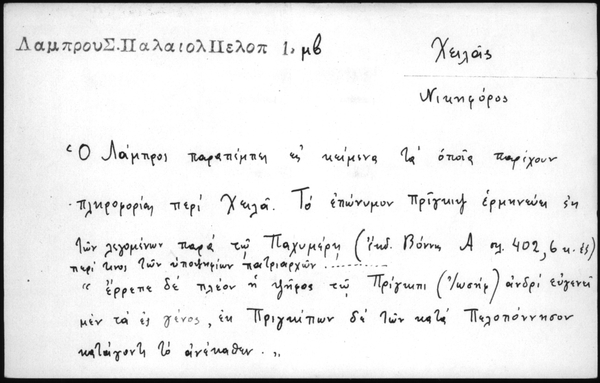 ΛαμπρουΣ.ΠαλαιολΠελοπ 1, μβ
Χειλᾶς
Νικηφόρος
"Ὁ Λάμπρος παραπέμπει εἰς κείμενα τὰ ὁποῖα παρέχουν
πληροφορίας περί Χειλᾶ. Τό ἐπώνυμον Πρίγκιψ ἑρμηνεύει ἐκ
τῶν λεγομένων παρά τῷ Παχυμέρῃ (ἔκδ. Βόννης Α σ. 402, 6 κ. ἑξ)
περί τινος τῶν ὑποψηφίων πατριαρχῶν ..........
"ἔρρεπε δέ πλέον ἡ ψῆφος τῷ Πρίγκιπι (Ἰωσήφ) ἀνδρί εὐγενεῖ
μέν τά ἐς γένος, ἐκ Πριγκίπων δέ τῶν κατά Πελοπόννησον
κατάγοντι τό ἀνέκαθεν.,,